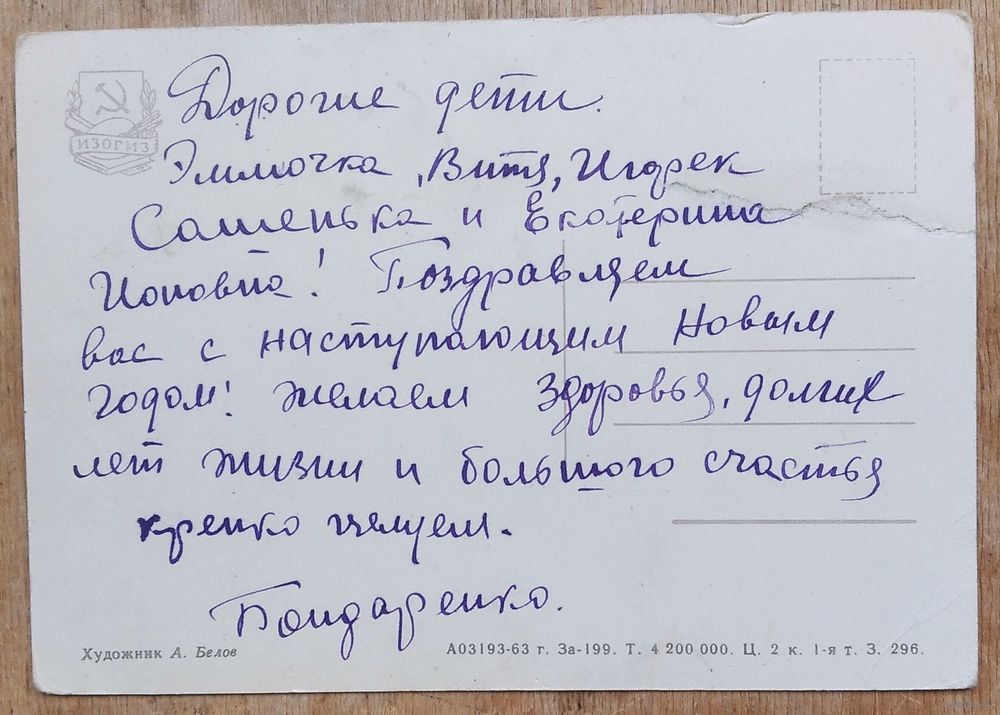 ИЗОГИЗ
Дорогие дети.
Эммочка, Витя, Игорек
Сашенька и Екатерина
Ионовна! Поздравляем
вас с наступающим Новым
годом! желаем здоровья, долгих
лет жизни и большого счастья
крепко целуем.
Бондаренко.
Художник А. Белов
А03193-63 г. За-199. Т. 4 200 000. Ц. 2 к. 1-я т. З. 296.